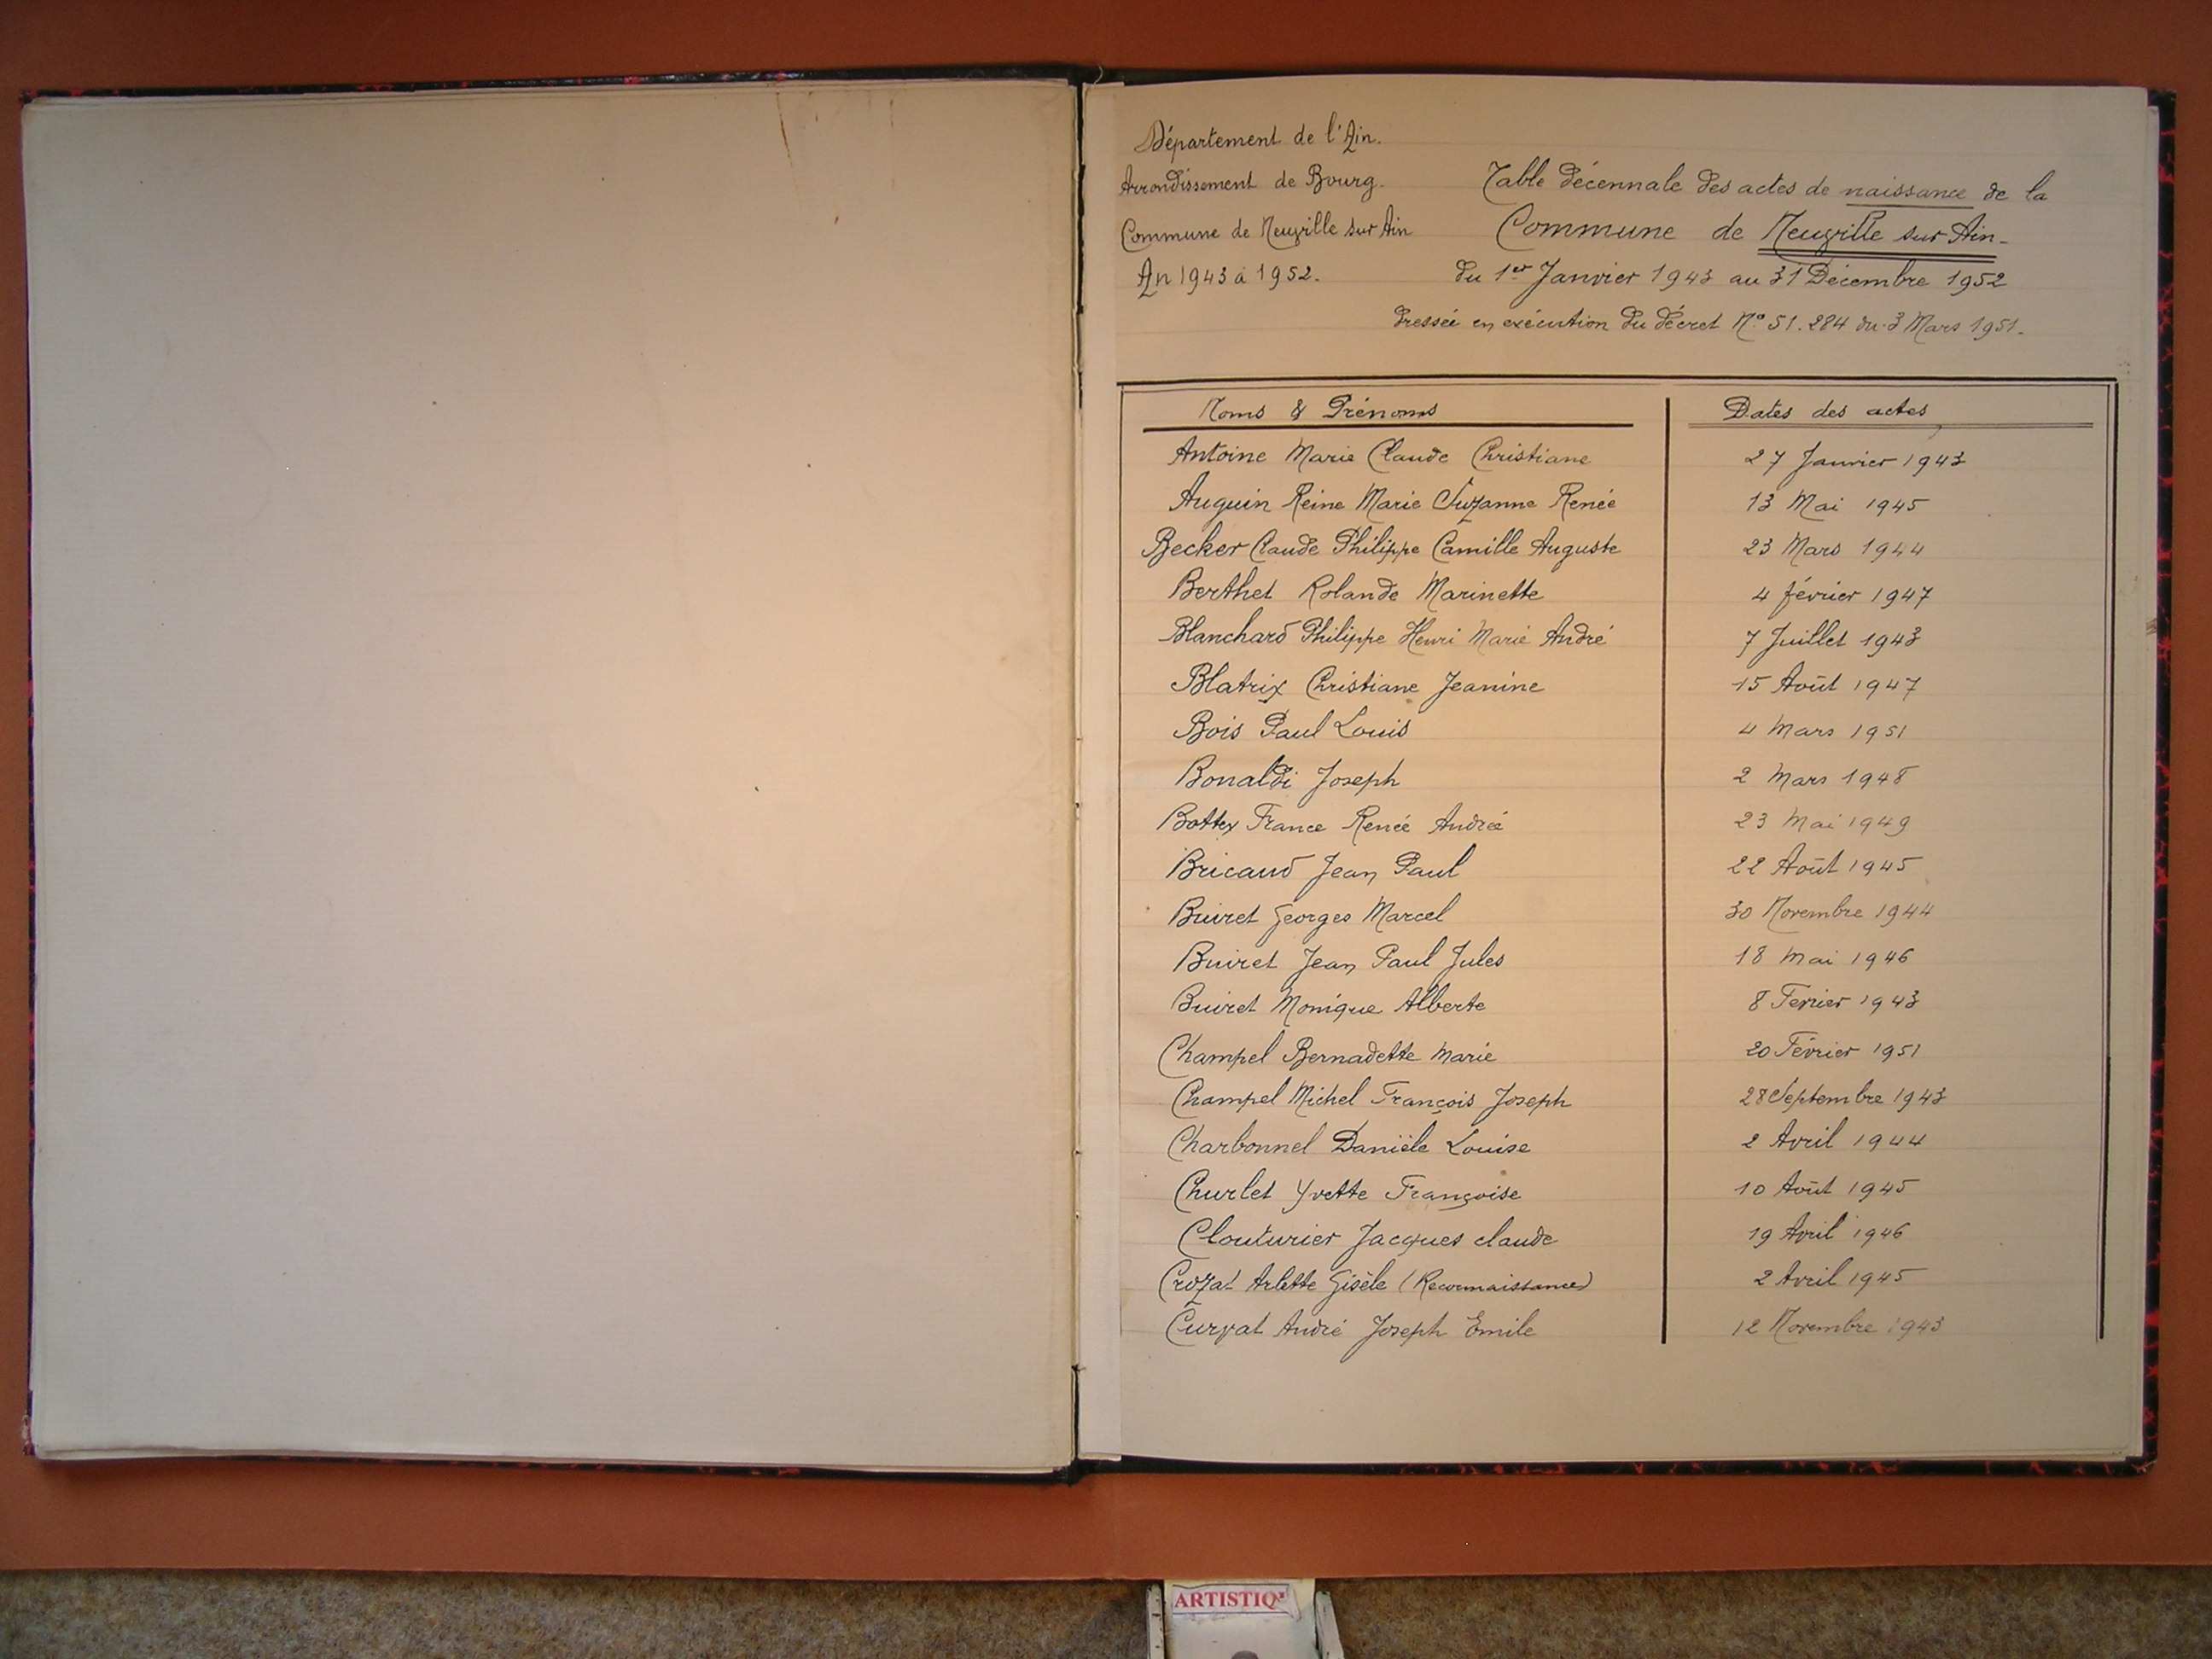 Département de l'Ain.
Arrondissement de Bourg.
Commune de Neuville sur Ain
An 1943 à 1952.
Table décennale des actes de naissance de la
Commune de Neuville sur Ain-
du 1er Janvier 1943 au 31 Décembre 1952
dressée en exécution du décret N° 51.284 du 3 Mars 1951.
Noms & Prénoms Dates des actes
Antoine Marie Claude Christiane 27 Janvier 1943
Auguin Reine Marie Suzanne Renée 13 Mai 1945
Becker Claude Philippe Camille Auguste 23 Mars 1944
Berthet Rolande Marinette 4 février 1947
Blanchard Philippe Henri Marie André 7 Juillet 1943
Blatrix Christiane Jeanine 15 Août 1947
Bois Paul Louis 4 Mars 1951
Bonaldi Joseph 2 Mars 1948
Bottex France Renée Andrée 23 Mai 1949
Bricaud Jean Paul 22 Août 1945
Buiret Georges Marcel 30 Novembre 1944
Buiret Jean Paul Jules 18 Mai 1946
Buiret Monique Alberte 8 Fevrier 1943
Champel Bernadette Marie 20 Février 1951
Champel Michel François Joseph 28 Septembre 1943
Charbonnel Danièle Louise 2 Avril 1944
Churlet Yvette Françoise 10 Août 1945
Clouturier Jacques claude 19 Avril 1946
Crozat Arlette Gisèle (Reconnaissance) 2 Avril 1945
Curvat André Joseph Emile 12 Novembre 1943
ARTISTIQ